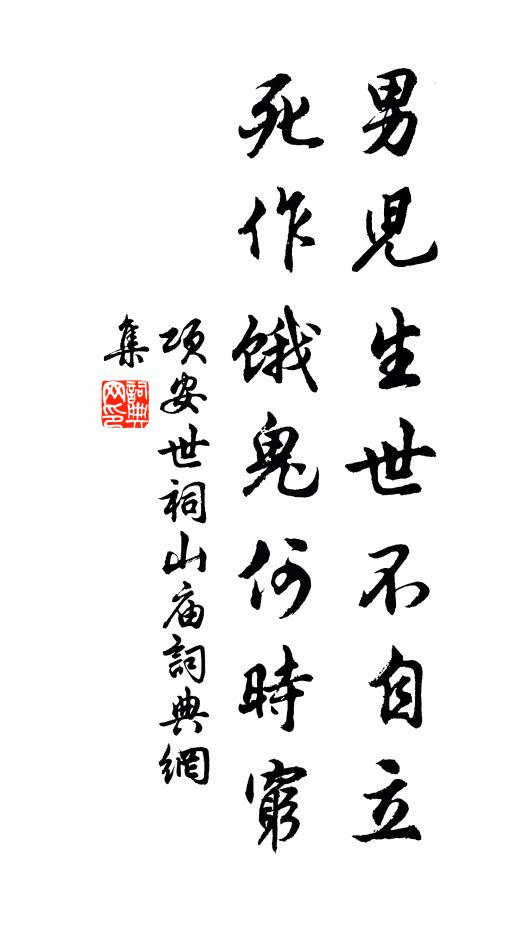 男兒生世不自立
死作餓鬼何時窮
項安世祠山廟詞典網
集
詞典網印